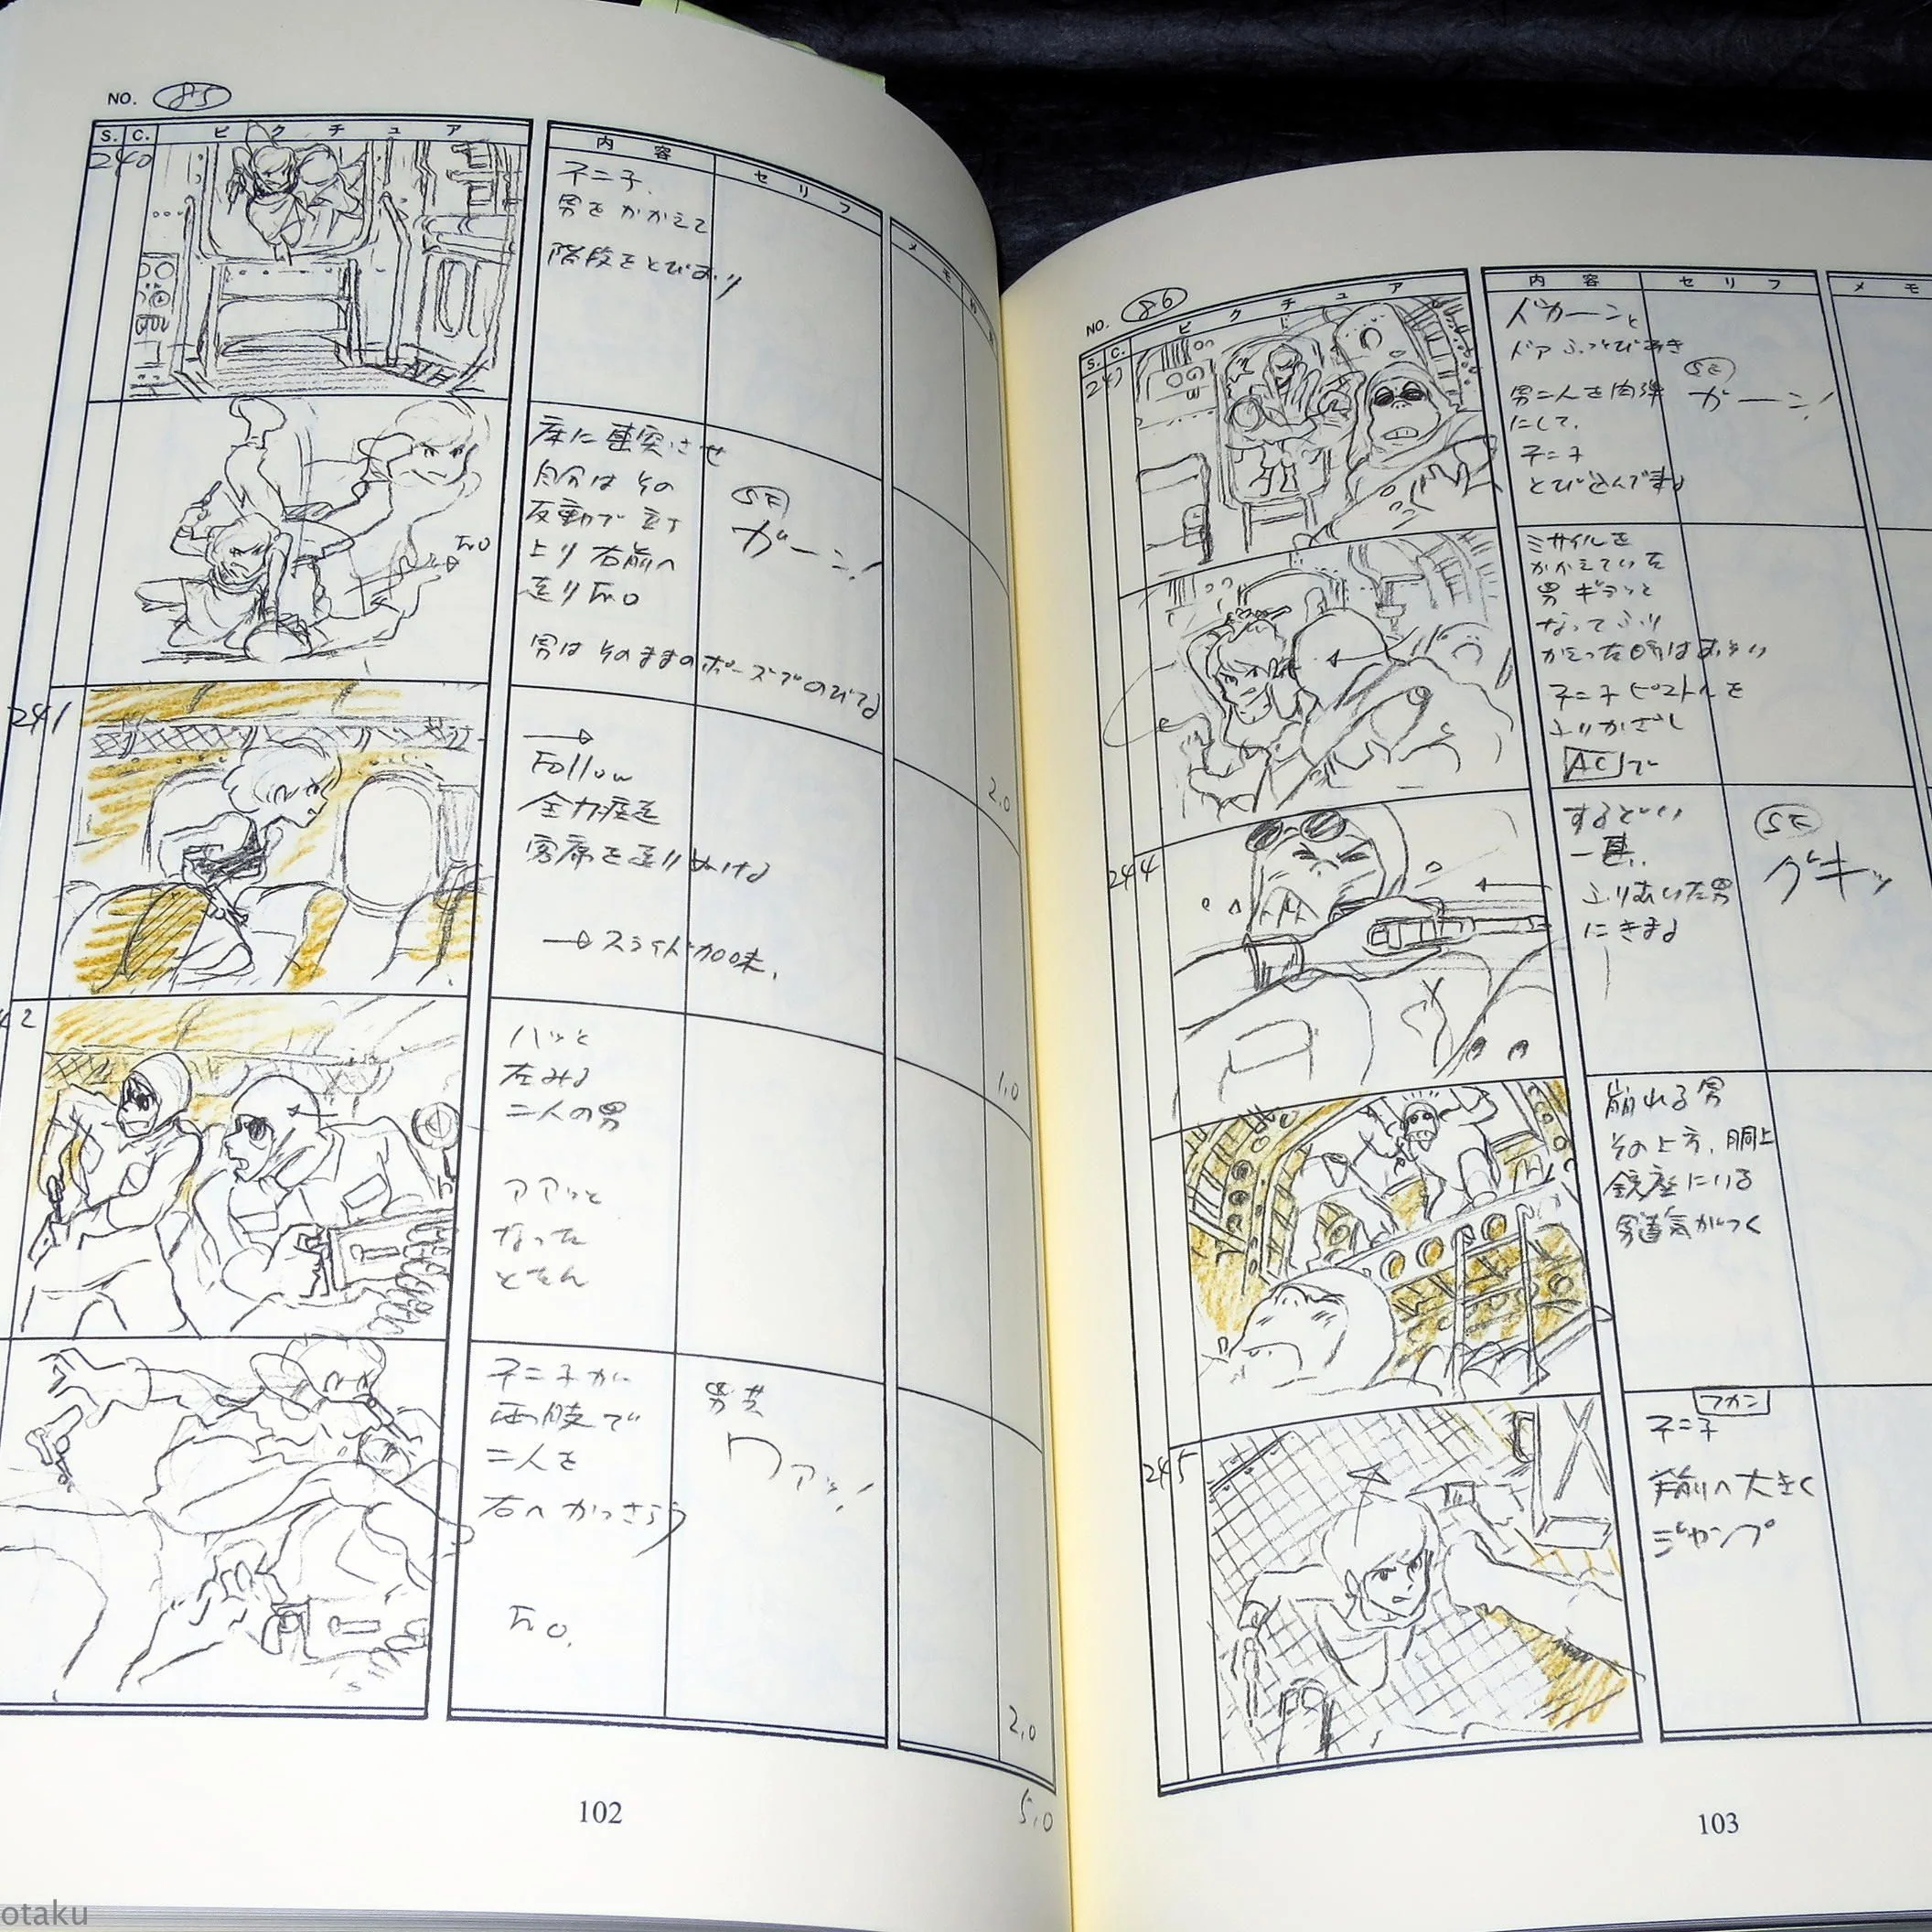 NO. 85
S. C. ピクチュア 内容 セリフ メモ
240
ネ二子、
男をかかえて
階段をとびおり
床に衝突させ
自分はその
反動で立上り
右前へ
走り
SE
ガーン!
男はそのままのポーズでのびてる
241
Follow
全力疾走
客席を走りぬける
スライド加味、
2.0
ハッと
左みる
二人の男
アアッと
なった
とたん
1.0
ネ二子が
両腕で
二人を
右へかっさらう
男共
ワアッ!
2.0
102
5.0
NO. 86
S. C. ピクチュア 内容 セリフ メモ
ドカーンと
ドアふっとびあき
男二人を肉弾
にして、
ネ二子
とび込んでまる
SE
ガーン!
ミサイルを
かかえていた
男ギョッと
なってふり
かえった時はおそい
ネ二子ピストルを
ふりかざし
ACで
244
するどい
一
ふりむいた男
にきまる
SE
グキッ
崩れる男
その上方、胴上
銃座にいる
男達気がつく
245
フカン
ネ二子
手前へ大きく
ジャンプ
103
otaku